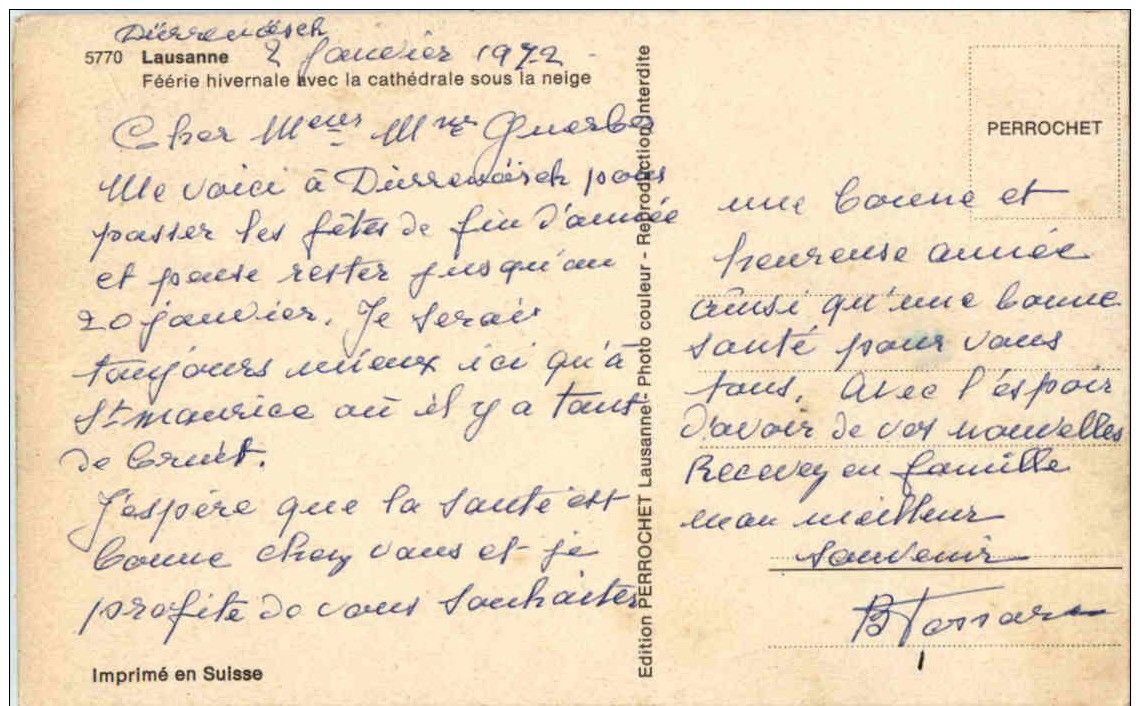 Dürrenäsch
5770 Lausanne 2 Janvier 1972
Féérie hivernale avec la cathédrale sous la neige
Cher Meur Mme
Me voici à Dürrenäsch pour
passer les fêtes de fin d'année
et pense rester jusqu'au
20 janvier. Je serais
toujours mieux ici qu'à
St maurice où il y a tant
de bruit.
J'espère que la santé est
bonne chez vous et je
profite de vous souhaiter
Imprimé en Suisse
Edition PERROCHET Lausanne - Photo couleur - Reproduction interdite
PERROCHET
une bonne et
heureuse année
ainsi qu'une bonne
santé pour vous
tous. Avec l'éspoir
d'avoir de vos nouvelles
Recevez en famille
mon meilleur
souvenir